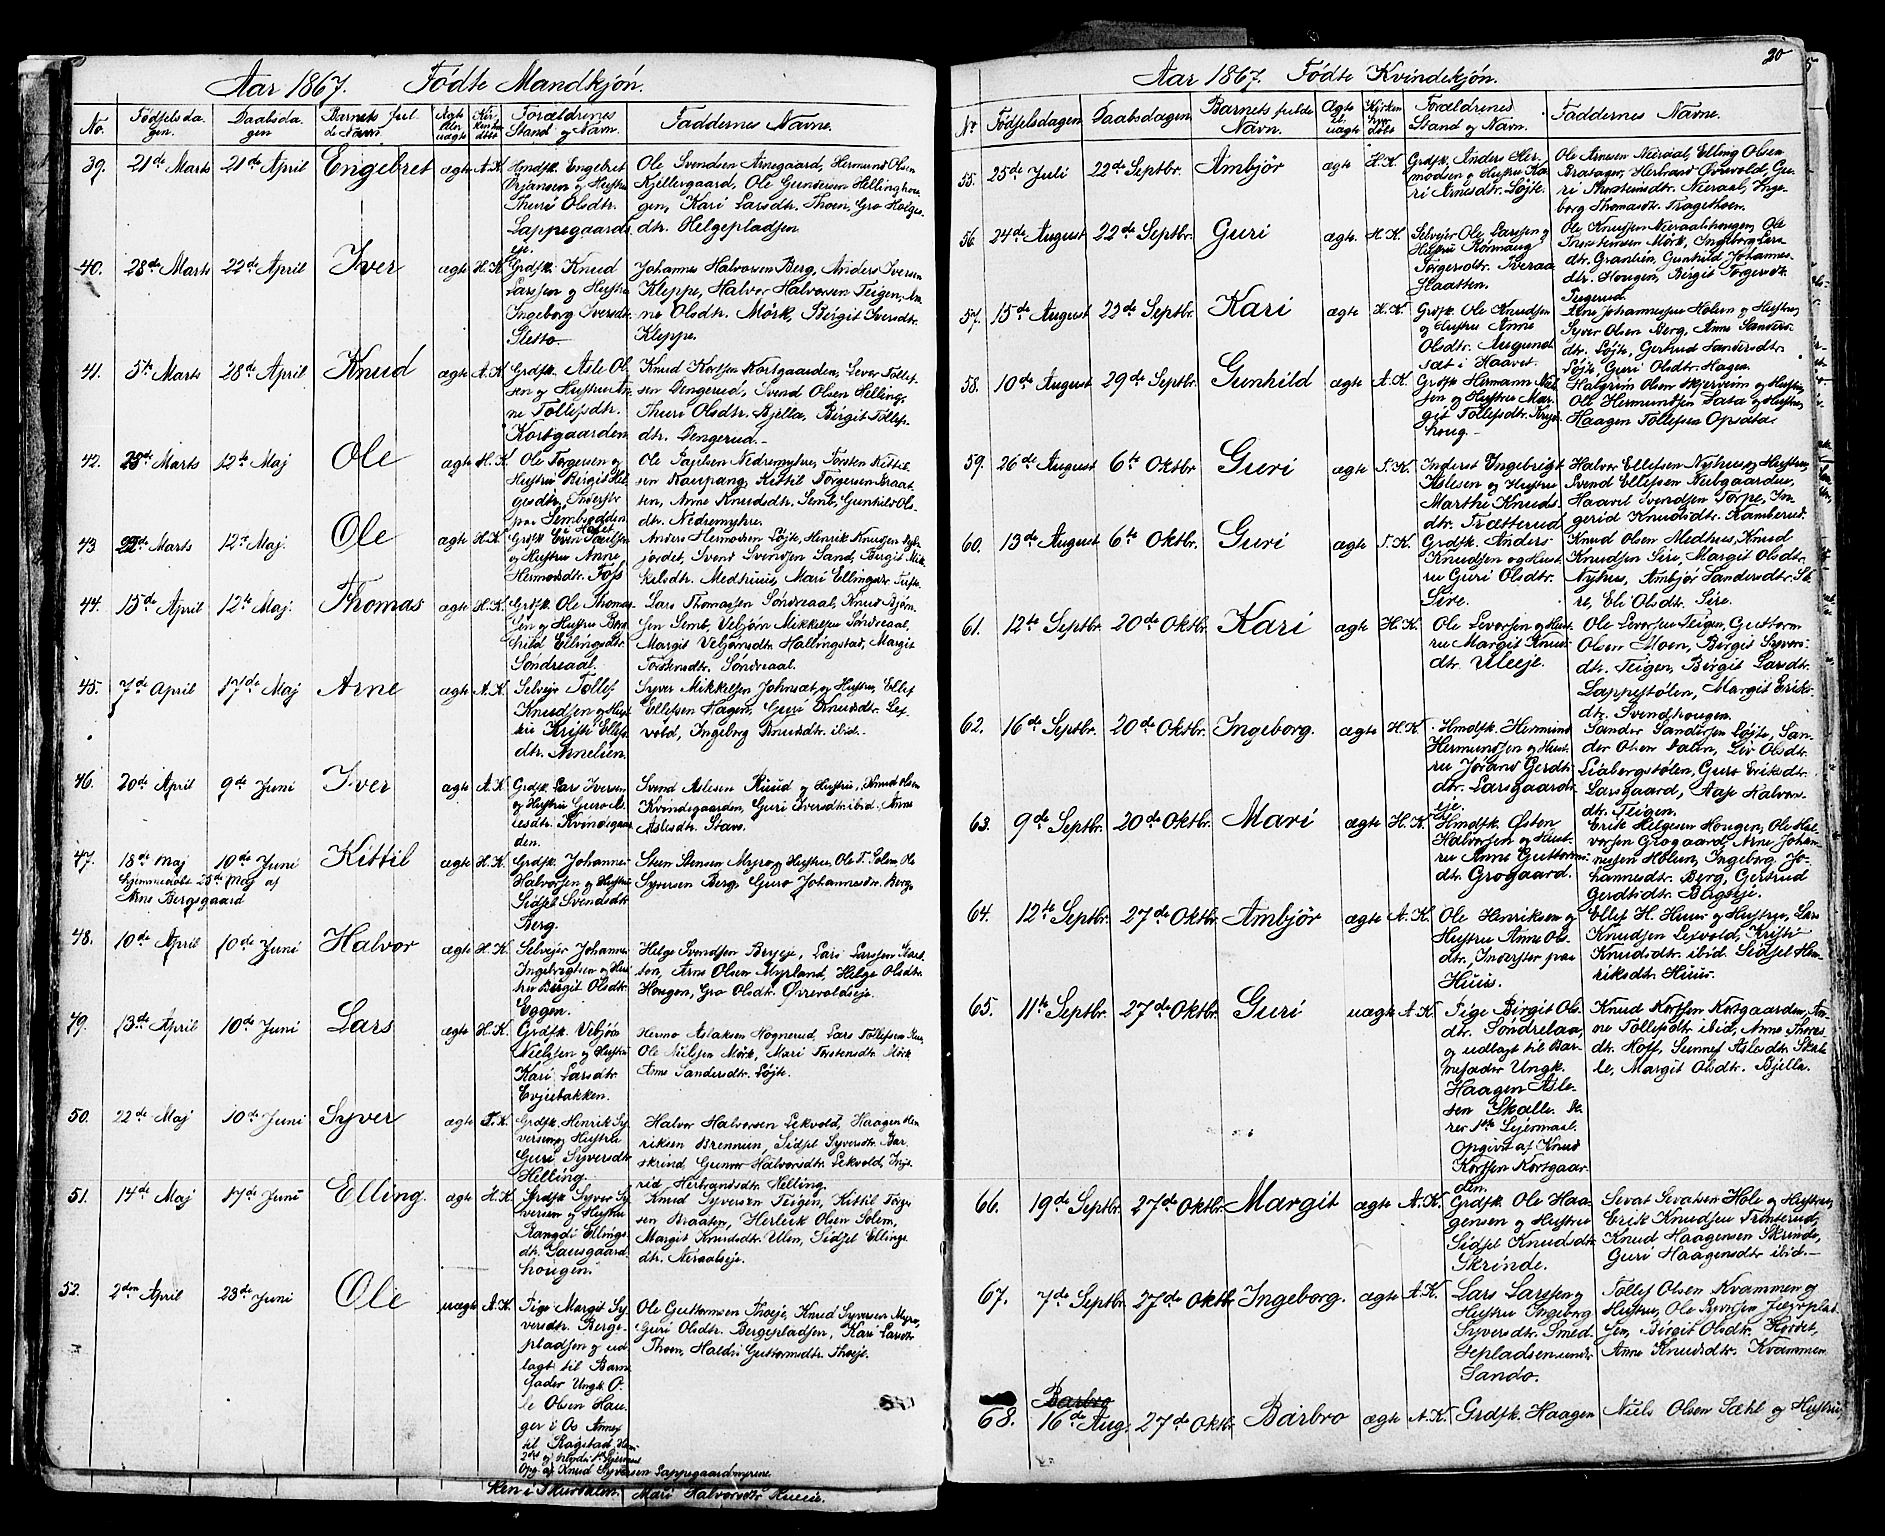 Aar 1867. Födte Mandkjön.
No. Födselsdagen. Daabsdagen Barnets fulde Navn. Ægte eller uægte Kirken hvor döbt Forældrenes Stand og Navn. Faddernes Navne.
39. 21de Marts 21de April Engebret ægte A.K. Hmdsk. Engebret
Örjansen og Hustru
Thuri Olsdtr.
Lappegaards
eje.
Ole Svendsen Arnegaard, Hermund Olsen
Kjellergaard, Ole Gundersen Hellinghou
gen, Kari Larsdtr. Thoen, Gro Helges
dtr. Helgepladsen
40. 28de Marts 22de April Iver ægte H.K. Grdsk. Knud
Larssen og Hustru
Ingeborg Iversdtr.
Sletto
Johannes Halvorsen Berg, Anders Iversen
Kleppe, Halvor Halvorsen Teigen, An
ne Olsdtr. Mörk, Birgit Iversdtr.
Kleppe.
41. 5te Marts 28de April Knud ægte A.K. Grdsk. Asle Ol
sen og Hustru An
ne Tollefsdtr.
Kortgaarden
Knud Kortsen Kortgaarden, Sever Tollef
sen Dengerud, Svend Olsen Helling,
Thuri Olsdtr. Bjella, Birgit Tollefs
dtr. Dengerud.
42. 25de Marts 12te Maj Ole ægte H.K. Ole Torgersen og
Hustru Birgit Hel
gesdtr., Inderster
paa Sembrodden
Ole Nedremyhre, Torsten Kittil
sen Naupang, Kittil Torgersen Braat
ten, Anne Knudsdtr. Semt, Gunhild Ols
dtr. Nedremyhre.
43. 22de Marts 12te Maj. Ole ægte H.K. Grdsk. Even
og Hustru Anne
Hermodsdtr. Foss
Anders Hermodsen Löjte, Henrik Knudsen
Svend Svendsen Sand, Birgit Mik
kelsdtr. Medhuus, Mari Ellingsdtr.
44. 15de April 12te Maj. Thomas ægte H.K. Grdsk. Ole Thomas
sen og Hustru
Ellingsdtr.
Söndreaal.
Lars Thomassen Söndreaal, Knud Bjön
sen Semt, Vebjörn Mikkelsen Söndreaal,
Margit Vebjönsdtr. Hallingstad, Margit
Torstensdtr. Söndreaal.
45. 7de April 17de Maj Arne ægte A.K. Selvejer Tollef
Knudsen og Hust
ru Kristi Ellefs
dtr. Arnelien.
Syver Mikkelsen Johnsæt og Hustru, Ellef
Ellefsen Hagen, Guri Knudsdtr. Lex
vold, Ingeborg Knudsdtr. ibid.
46. 20de April 9de Juni Iver ægte A.K. Grdsk. Lars Iversen
og Hustru Guro As
lesdtr. Kvindegaar
den.
Svend Aslesen Ruud og Hustru, Knud Olsen
Kvindegaarden, Guri Iversdtr. ibid. Anne
Aslesdtr. Stave.
47. 18de Maj 10de Juni Kittil ægte H.K. Grdsk. Johannes
Hjemmedöbt 25de Maj af
Arne Bergsgaard
Halvorsen og Hustru
Sidsel Svendsdtr.
Berg.
Steen Stensen Myro og Hustru, Ole T. Solem, Ole
Syversen Berg, Guro Johannesdtr. Berg.
48. 10de April 10de Juni Halvor ægte H.K. Selvejer Johannes
Ingebrigtsen og Hust
ru Birgit Olsdtr.
Eggen.
Helge Svendsen Bryeje, Lars Larssen
Arne Olsen Myrland, Helge Olsdtr.
Hougen, Gro Olsdtr. Övrevoldseje.
49. 13de April 10de Juni Lars ægte H.K. Grdsk. Vebjön
Nielssen og Hustru
Kari Larsdtr.
Evjebakken.
Hermo Aslaksen Hognerud, Lars Tollefsen
Ole Nielsen Mörk, Mari Torstensdtr. Mörk
Anne Sandersdtr. Löjte.
50. 22de Maj 10de Juni Syver ægte T.K. Grdsk. Henrik Sy
versen og Hustru
Guri Syversdtr.
Helling.
Halvor Halvorsen Lekvold, Haagen Hen
riksen Brennun, Sidsel Syversdtr. Bar
skrind, Gunvor Halvorsdtr. Lekvold, Inge
rid Herbrandsdtr. Helling.
51. 14de Maj 17de Juni Elling. ægte H.K. Grdsk. Syver Sy
versen og Hustru
Rangdi Ellings
dtr. Sausgaard
hougen.
Knud Syversen Teigen, Kittil Torge
sen Braaten, Herleik Olsen Solem,
Margit Knudsdtr. Ulen, Sidsel Ellings
dtr. Neraalseje.
52. 2den April 23de Juni Ole uægte A.K. Pige Margit Sy
versdtr. Berge
pladsen og ud
lagt til Barne
fader Ungk. O
le Olsen Hau
ger i Os Annex
til
Opg. af Knud Syversen Lappegaardmyrene
Ole Guttormsen Thoeje, Knud Syversen Myro,
Guri Olsdtr. Bergepladsen, Kari Larsdtr.
Thoen, Haldis Guttormsdtr. Thoeje.
Mari Halvorsdtr.
20
Aar 1867. Födte Kvindekjön.
No Födselsdagen Daabsdagen Barnets fulde Navn. Ægte el. uægte Kirken hvor döbt Forældrenes Stand og Navn. Faddernes Navne.
55. 25de Juli 22de Septbr. Ambjör ægte H.K. Grdsk. Anders Her
modsen og Hustru Ka
ri Arnesdtr. Löjte.
Ole Arnesen Neraal, Elling Olsen
Bratager, Herbrand Övrevold, Gu
ri Thorsteinsdtr. Neraal, Inge
borg Thomasdtr. Tragethoen.
56. 24de August 22de Septbr. Guri ægte. H.K. Selvejer Ole Larssen og
Hustru
Torgersdtr. Tveraa
Slaatten.
Ole Knudsen Neraalhougen, Ole
Thorsteinsen Mörk, Ingeborg Lars
dtr. Granlien, Gunhild Johannes
dtr. Hougen, Birgit Torgersdtr.
Teigerud.
57. 15de August 22de Septbr. Kari ægte H.K. Grdsk. Ole Knudsen
og Hustru Anne
Olsdtr. Augund
sdt i Haavet.
Arne Johannessen Holem og Hustru,
Syver Olsen Berg, Anne Sanders
dtr. Löjte, Gertrud Sandersdtr.
Löjte, Guri Olsdtr. Hagen.
58. 10de August 29de Septbr. Gunhild ægte A.K. Grdsk. Hermann Niel
sen og Hustru Mar
git Tollefsdtr.
houg
Halgrim Olsen Skjerveim og Hustru,
Ole Hermundsen Lata og Hustru,
Haagen Tollefsen Opsata.
59. 26de August 6te Oktbr. Guri ægte T.K. Inderst Ingebrigt
Aslesen og Hustru
Marthe Knuds
dtr. Trætterud
Halvor Ellefsen Nyhus og Hustru,
Svend Ellefsen Nubgaarden,
Haavel Svendsen Torpe, In
gerid Knudsdtr. Kamberud.
60. 13de August 6te Oktbr. Guri ægte T.K. Grdsk. Anders
Knudsen og Hust
ru Guri Olsdtr.
Sire.
Knud Olsen Medhus, Knud
Knudsen Sire, Margit Olsdtr.
Nyhus, Ambjör Sandersdtr. Si
re, Eli Olsdtr. Sire.
61. 12te Septbr. 20de Oktbr. Kari ægte H.K. Ole Leversen Hust
ru Margit Knuds
dtr. Uleeje.
Ole Leversen Teigen, Guttorm
Olsen Moen, Birgit Syvers
dtr. Teigen, Birgit Larsdtr.
Lappestölen, Margit Eriks
dtr. Svendhougen.
62. 16de Septbr. 20de Oktbr. Ingeborg. ægte H.K. Hmdsk. Hermund
Hermundsen og Hust
ru Jörand Gerdts
dtr. Larsgaards
eje.
Sander Sandersen Löjte, San
der Olsen Dalen, Liv Olsdtr.
Liabergstölen, Guro Eriksdtr.
Larsgaard, Aase Halvors
dtr. Teigen.
63. 9de Septbr. 20de Oktbr. Mari ægte H.K. Hmdsk. Östen
Halvorsen og Hust
ru Anne Guttorms
dtr. Grogaard.
Erik Helgesen Hougen, Ole Hal
vorsen Grogaard, Arne Johan
nessen Holem, Ingeborg Jo
hannesdtr. Berg, Gertrud
Gerdtsdtr. Bageeje.
64. 12te Septbr. 27de Oktbr. Ambjör ægte A.K. Ole Henriksen og
Hustru Anne Ols
dtr. Inderster paa
Huus.
Ellef H. Huus og Hustru, Lars
Knudsen Lexvold, Kristi
Knudsdtr. ibid. Sidsel Hen
riksdtr. Huus.
65. 11te Septbr. 27de Oktbr. Guri uægte A.K. Pige Birgit Ols
dtr. Sondrelaa,
og udlagt til Bar
nefader Ungk.
Haagen Asle
sen Skalle.
1ste Leiermaal.
Opgivet af Knud
Kortsen Kortgaar
den.
Knud Kortsen Kortgaarden, An
ne Tollefsdtr. ibid, Anne Thores
dtr. Hoff, Sunnef Aslesdtr. Skal
le, Margit Olsdtr. Bjella.
66. 19de Septbr. 27de Oktbr. Margit ægte A.K. Grdsk. Ole Haa
gensen og Hustru
Sidsel Knudsdtr.
Skrinde.
Sevat Sevatsen Hole og Hustru,
Erik Knudsen Trinterud,
Knud Haagensen Skrinde,
Guri Haagensdtr ibid.
67. 7de Septbr. 27de Oktbr. Ingeborg. ægte A.K. Lars Larssen og
Hustru Ingeborg
Syversdtr. Smed
sepladsen under
Sando.
Tollef Olsen Kvammen og
Hustru, Ole
sen, Birgit Olsdtr. Hovdet,
Anne Knudsdtr. Kvammen
Barbro
68. 16de Aug. 27de Oktbr. Barbro ægte A.K. Grdsk. Haagen Niels Olsen Sæhl og Hustru,